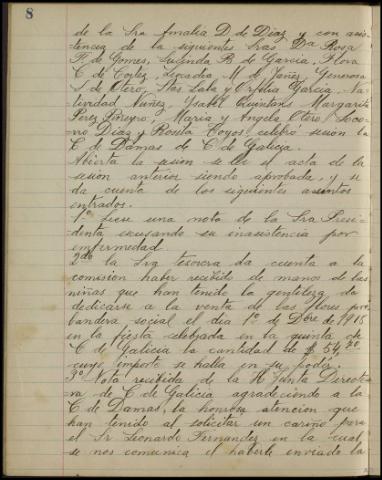 8
de la Sra Amalia D de Diaz y con asis-
tencia de la siguientes Sras Dª Rosa
F. de Gomes, Lucinda R. de Garcia, Flora
C de Cortez, Leocadia M. d Yañez, Generosa
S. de Otero, Stas Lala y Ofelia Garcia, Na-
tividad Nuñez, Ysabel Quintans Margarita
Perez Piñeyro, Maria y Angela Otero, Soco-
rro Diaz y Rosita Coyos celebró sesión la
C de Damas de C de Galicia.
Abierta la sesion se lee el acta de la
sesion anterior siendo aprobada, y se
da cuenta de los siguientes asuntos
entrados.
1º Léese una nota de la Sra Presi-
denta escusando su inasistencia por
enfermedad
2do la Sra tesorera da cuenta a la
comision haber recibido de manos de las
niñas que han tenido la gentileza de
dedicarse a la venta de las flores pro
bandera social el dia 1º de Dbre de 1918
en la fiesta celebrada en la quinta de
C de Galicia la cantidad de $ 54,70
cuyo importe se halla en su poder.
3º Nota recibida de la H Junta Directi-
va de C de Galicia agradeciendo a la
C de Damas, la honrosa atencion que
han tenido al solicitar un cariño para
el Sr Leonardo Fernandez en la cual
se nos comunica el haberle enviado la